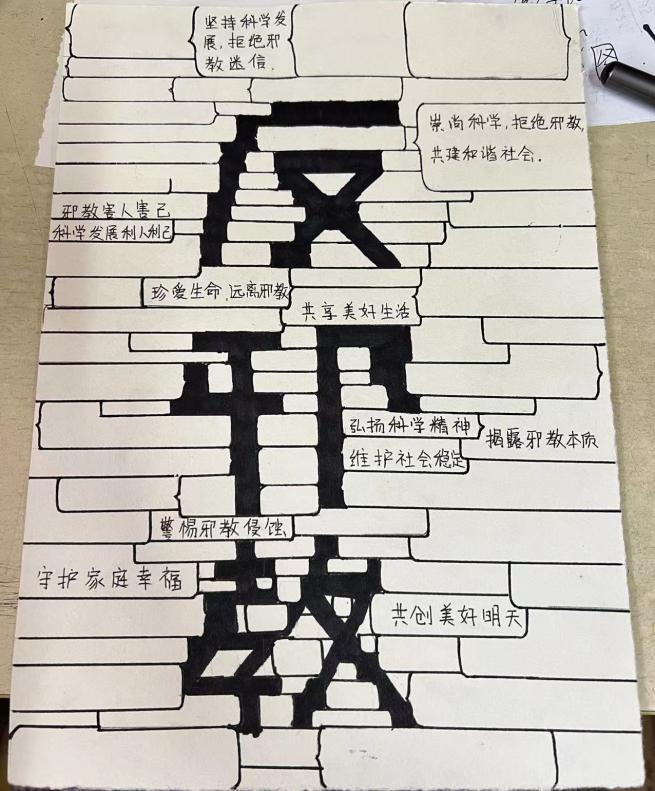 坚持科学发
展，拒绝邪
教迷信.
崇尚科学，拒绝邪教，
共建和谐社会.
反
邪教害人害己
科学发展利人利己
珍爱生命，远离邪教
共享美好生活
邪
弘扬科学精神
维护社会稳定
揭露邪教本质
警惕邪教侵蚀
守护家庭幸福
教
共创美好明天